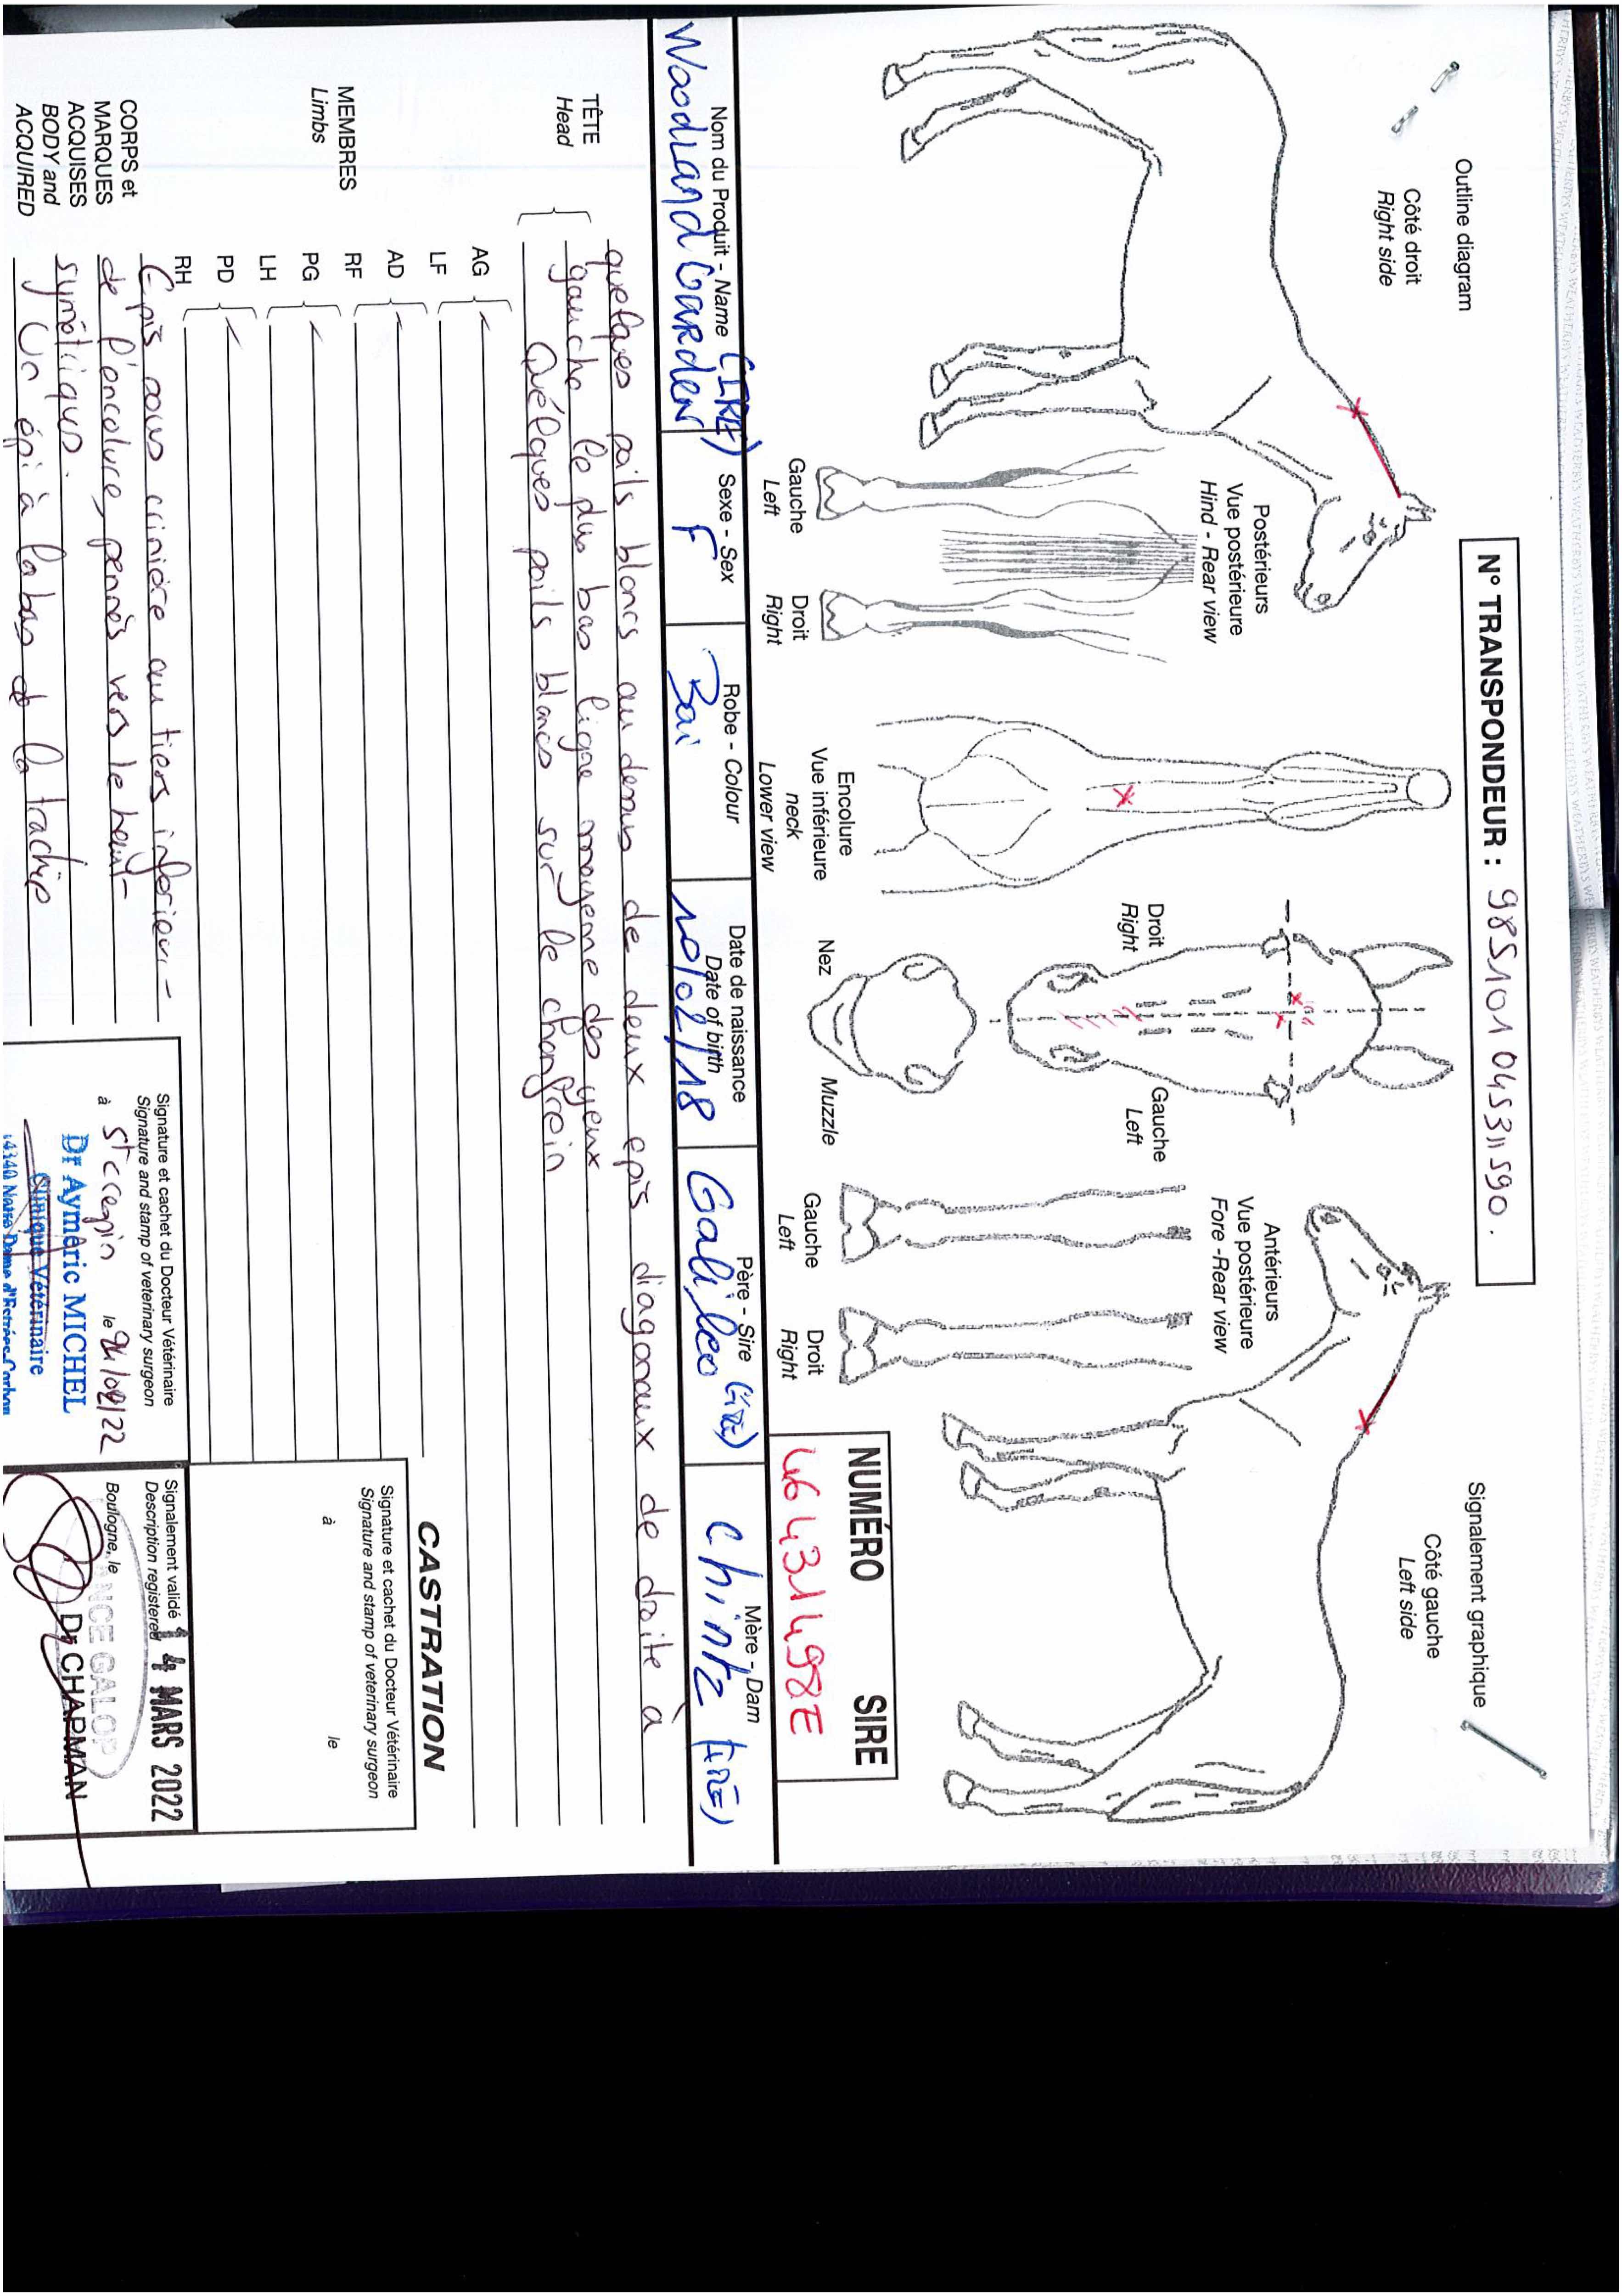 N° TRANSPONDEUR : 985101045311590.
Outline diagram
Signalement graphique
Côté droit
Right side
Côté gauche
Left side
Postérieurs
Vue postérieure
Hind - Rear view
Gauche
Left
Droit
Right
Encolure
Vue inférieure
neck
Lower view
Droit
Right
Gauche
Left
Nez
Muzzle
Antérieurs
Vue postérieure
Fore -Rear view
Gauche
Left
Droit
Right
NUMÉRO SIRE
46431498E
Nom du Produit - Name
Woodland Garden (IRE)
Sexe - Sex
F
Robe - Colour
Bai
Date de naissance
Date of birth
10/02/18
Père - Sire
Galileo (IRE)
Mère - Dam
Chintz (IRE)
TÊTE
Head
quelques poils blancs au dessus de deux epis diagonaux de droite à
gauche le plus bas ligne moyenne des yeux
Quelques poils blancs sur le chanfrein
MEMBRES
Limbs
AG
LF
AD
RF
PG
LH
PD
RH
CORPS et
MARQUES
ACQUISES
BODY and
ACQUIRED
Epis sous crinière au tiers inférieur
de l'encolure, pennés vers le haut
symétriques.
Un épi à la bas de la tachée
CASTRATION
Signature et cachet du Docteur Vétérinaire
Signature and stamp of veterinary surgeon
à le
Signature et cachet du Docteur Vétérinaire
Signature and stamp of veterinary surgeon
à St crepin le
Dr Aymeric MICHEL
Clinique Vétérinaire
14340 Notre Dame d'Estrées-Corbon
Signalement validé
Description registered
14 MARS 2022
Boulogne, le
FRANCE GALOP
Dr CHAPMAN